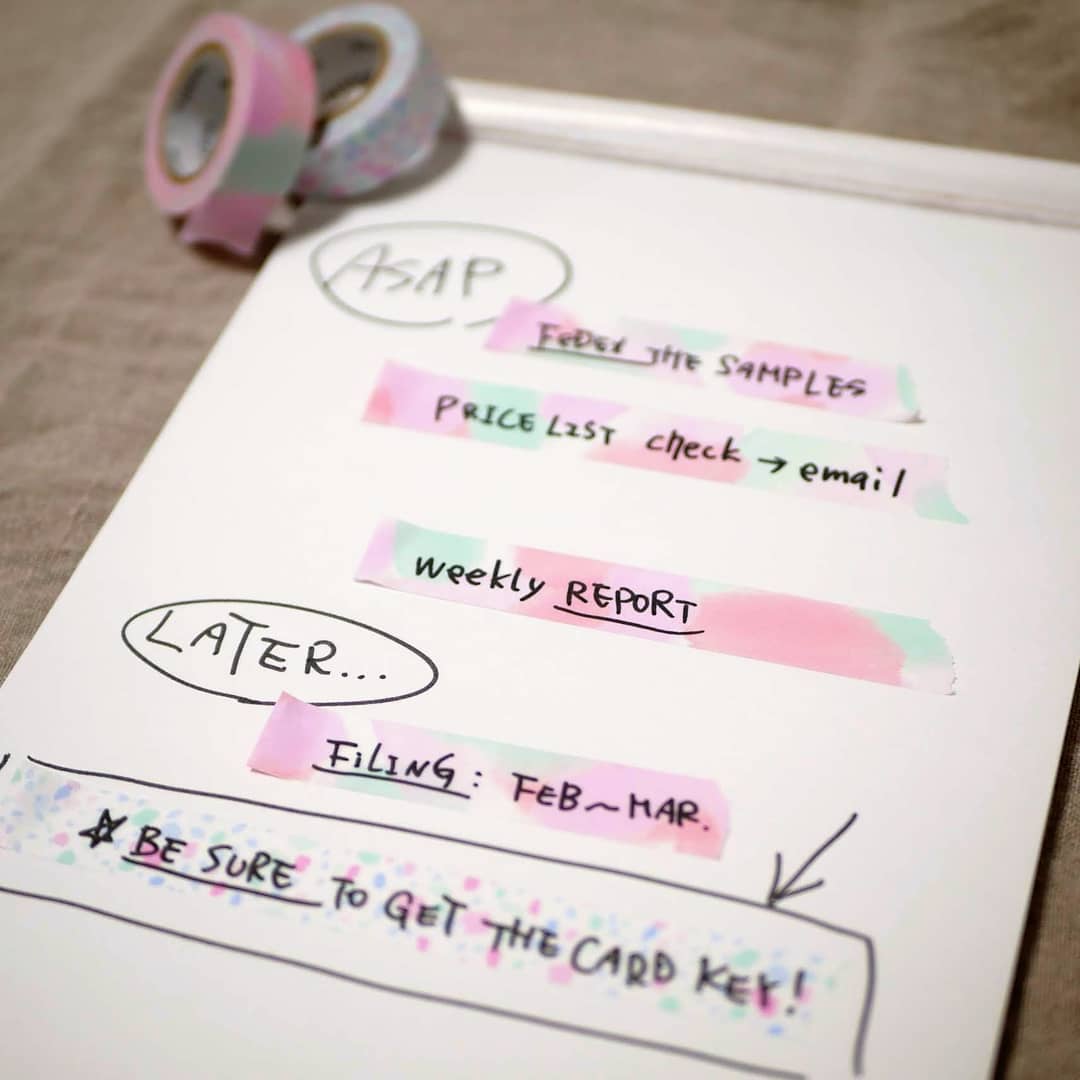 ASAP
FEDEX THE SAMPLES
PRICE LIST check → email
weekly REPORT
LATER...
FiLING: FEB~MAR.
☆ BE SURE TO GET THE CARD KEY!